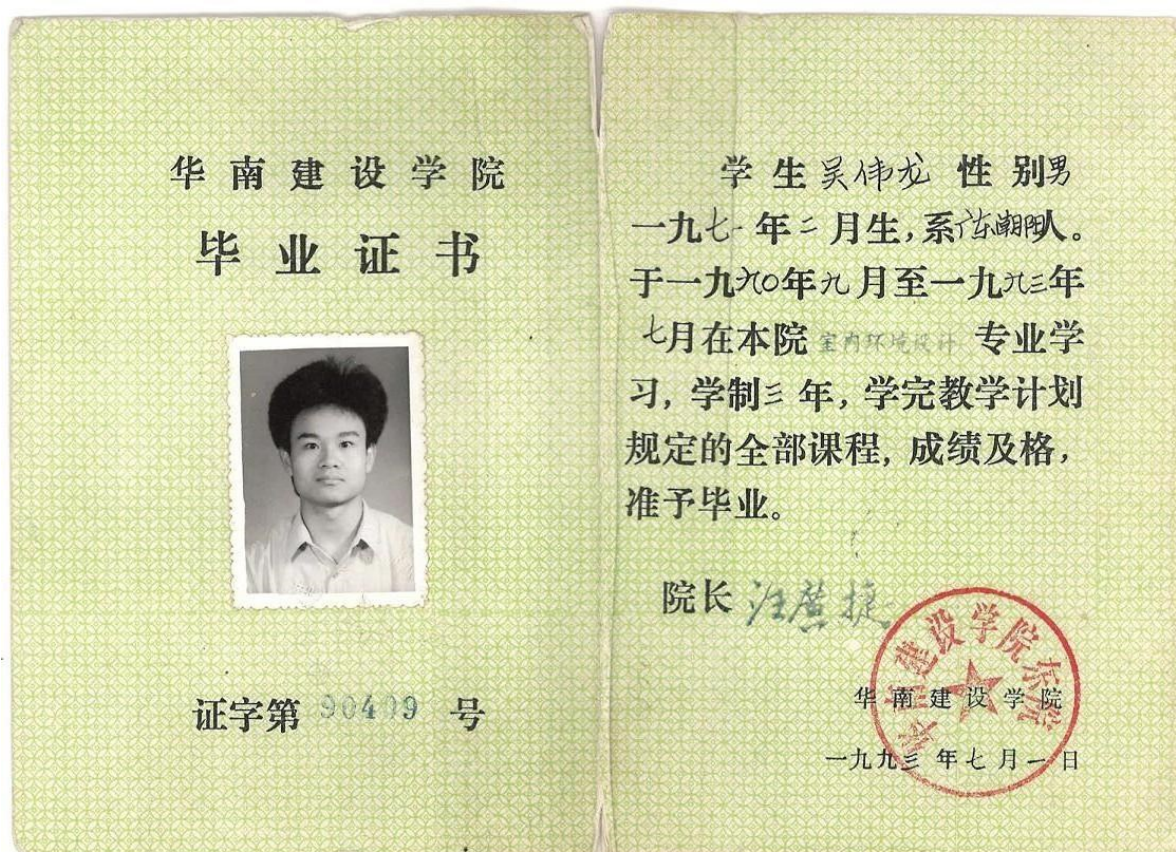 华南建设学院
毕业证书
证字第 90409 号
学生吴伟龙性别男
一九七一年二月生，系广东潮阳人。
于一九九〇年九月至一九九三年
七月在本院室内环境设计专业学
习，学制三年，学完教学计划
规定的全部课程，成绩及格，
准予毕业。
院长
华南建设学院东院
华南建设学院
一九九三年七月一日